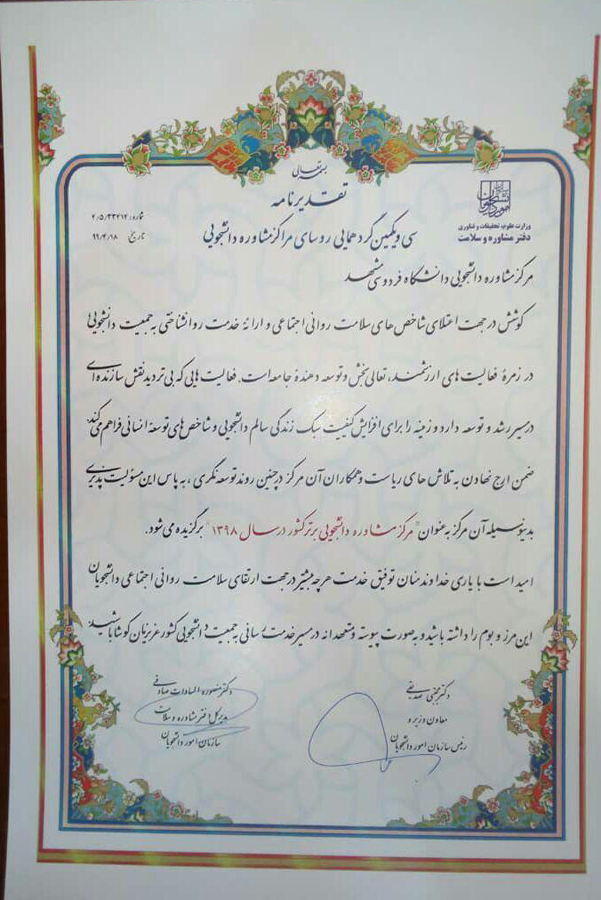 بسمه تعالی
تقدیرنامه
شماره: ۴/۵/۳۳۲۱۴
تاریخ ۹۹/۴/۱۸
سازمان امور دانشجویان
وزارت علوم، تحقیقات و فناوری
دفتر مشاوره و سلامت
سی و یکمین گردهمایی روسای مراکز مشاوره دانشجویی
مرکز مشاوره دانشجویی دانشگاه فردوسی مشهد
کوشش در جهت اعتلای شاخص های سلامت روانی اجتماعی و ارائه خدمت روانشناختی به جمعیت دانشجویی
در زمرهٔ فعالیت های ارزشمند، تعالی بخش و توسعه دهندهٔ جامعه است. فعالیت هایی که بی تردید نقش سازنده ای
در مسیر رشد و توسعه دارد و زمینه را برای افزایش کیفیت سبک زندگی سالم دانشجویی و شاخص های توسعهٔ انسانی فراهم می کند.
ضمن ارج نهادن به تلاش های ریاست و همکاران آن مرکز در چنین روند توسعه نگری، به پاس این مسئولیت پذیری
بدینوسیله آن مرکز به عنوان "مرکز مشاوره دانشجویی برتر کشور در سال ۱۳۹۸" برگزیده می شود.
امید است با یاری خداوند منان توفیق خدمت هرچه بیشتر در جهت ارتقای سلامت روانی اجتماعی دانشجویان
این مرز و بوم را داشته باشید و به صورت پیوسته و متعهدانه در مسیر خدمت رسانی به جمعیت دانشجویی کشور عزیزمان کوشا باشید
دکتر مجتبی صدیقی
معاون وزیر و
رئیس سازمان امور دانشجویان
دکتر منصوره السادات صادقی
مدیر کل دفتر مشاوره و سلامت
سازمان امور دانشجویان